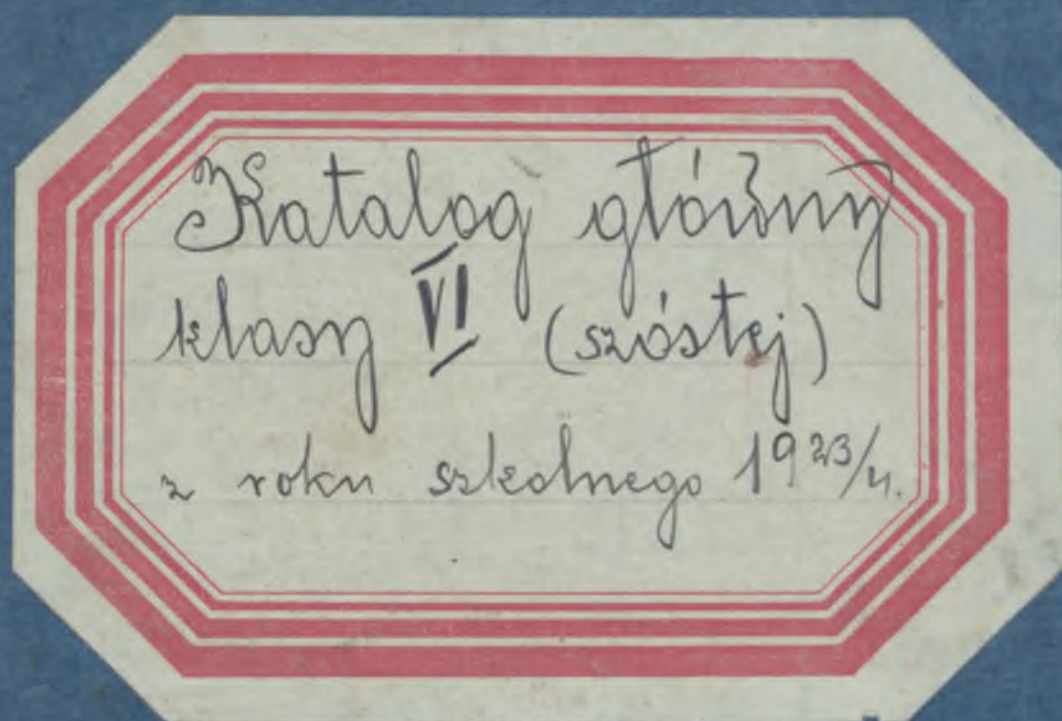 Katalog główny
klasy VI (szóstej)
z roku szkolnego 1923/4.